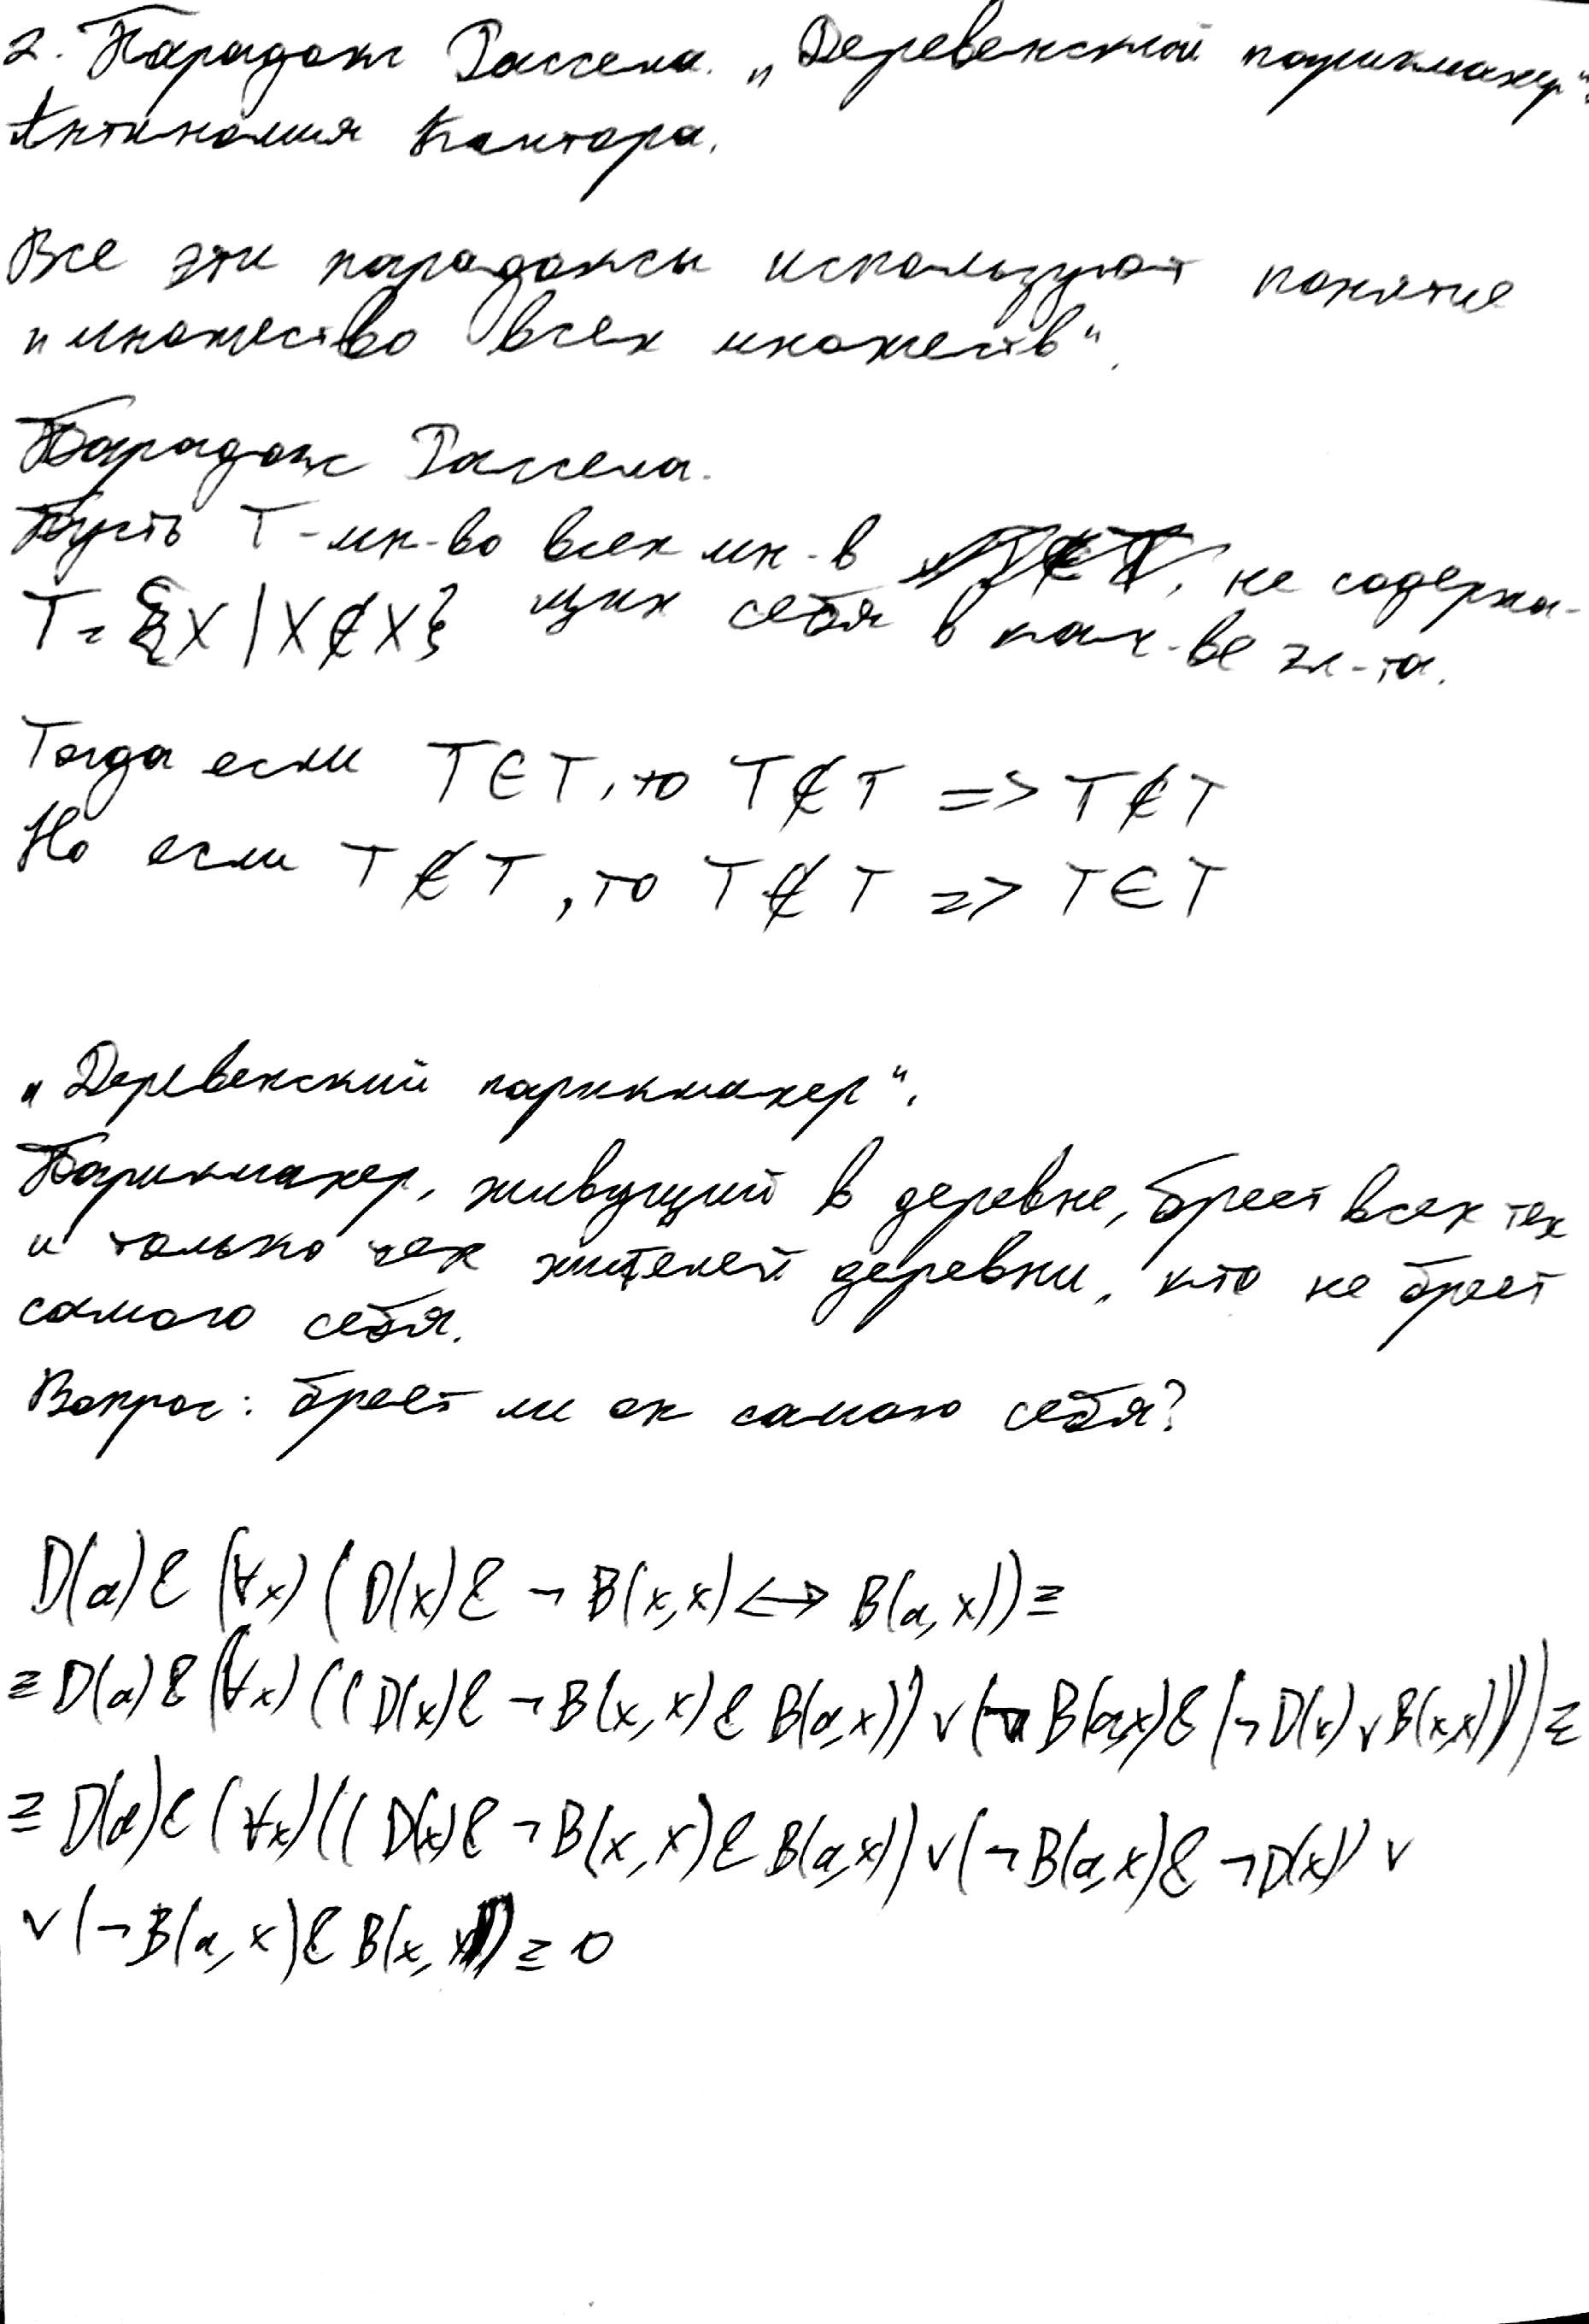 2. Парадокс Рассела. „Деревенский парикмахер".
Антиномия Кантора.
Все эти парадоксы используют понятие
„множество всех множеств".
Парадокс Рассела.
Пусть T - мн-во всех мн-в, не содержа-
T = {X | X ∉ X} щих себя в кач-ве эл-та.
Тогда если T ∈ T, то T ∉ T => T ∉ T
Но если T ∉ T, то T ∉ T => T ∈ T
„Деревенский парикмахер".
Парикмахер, живущий в деревне, бреет всех тех
и только тех жителей деревни, кто не бреет
самого себя.
Вопрос: бреет ли он самого себя?
D(a) & (∀x) (D(x) & ¬ B(x,x) <-> B(a,x)) ≡
≡ D(a) & (∀x) ((D(x) & ¬ B(x,x) & B(a,x)) ∨ (¬ B(a,x) & (¬ D(x) ∨ B(x,x)))) ≡
≡ D(a) & (∀x) ((D(x) & ¬ B(x,x) & B(a,x)) ∨ (¬ B(a,x) & ¬ D(x)) ∨
∨ (¬ B(a,x) & B(x,x))) ≡ 0